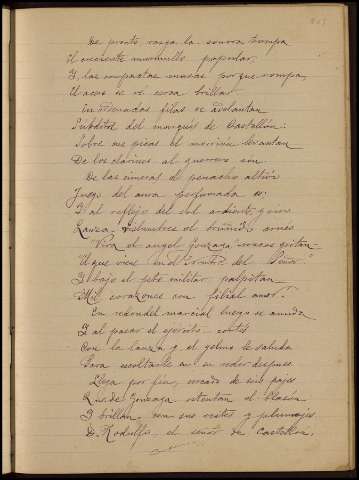 De pronto rasga la sonora trompa
El creciente murmullo popular.
Y las compactas masas porque rompa,
El acero se ve cerca brillar
En ordenadas filas se adelantan
Súbditos del marqués de Castellón:
Sobre sus picas el morrión levantan
De los clarines al guerrero son.
De las cimeras el penacho altivo
Juego del aura perfumada es:
Y al reflejo del sol ardiente y vivo
Lanza vislumbres el bruñido arnés
Viva el angel Gonzaga
"El que viene en el nombre del Señor."
Y bajo el peto militar palpitan
Mil corazones con filial amor."
En redondel marcial luego se anuda
Y al pasar el ejército cortés
Con la lanza y el yelmo le saluda
Para escoltarle en su redor despues
Llega por fin, cercado de sus pajes
Luis de Gonzaga ostentan el blasón
Y brillan con sus cintas y plumajes
D. Rodolfo, el señor de Castellón.